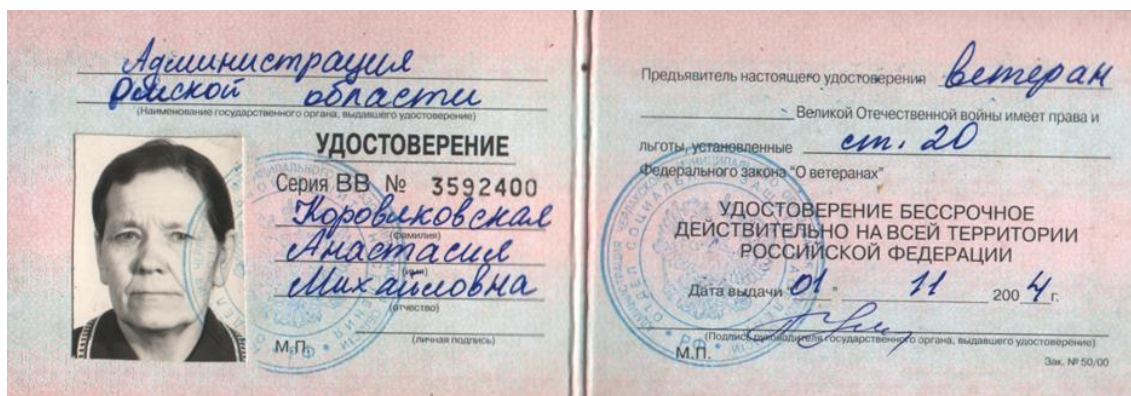 Администрация
Омской области
(Наименование государственного органа, выдавшего удостоверение)
УДОСТОВЕРЕНИЕ
Серия ВВ № 3592400
Коровяковская
(фамилия)
Анастасия
(имя)
Михайловна
(отчество)
(личная подпись)
М.П.
Предъявитель настоящего удостоверения ветеран
Великой Отечественной войны имеет права и
льготы, установленные ст. 20
Федерального закона "О ветеранах"
УДОСТОВЕРЕНИЕ БЕССРОЧНОЕ
ДЕЙСТВИТЕЛЬНО НА ВСЕЙ ТЕРРИТОРИИ
РОССИЙСКОЙ ФЕДЕРАЦИИ
Дата выдачи 01 " 11 2004 г.
(Подпись руководителя государственного органа, выдавшего удостоверение)
М.П.
Зак. № 50/00